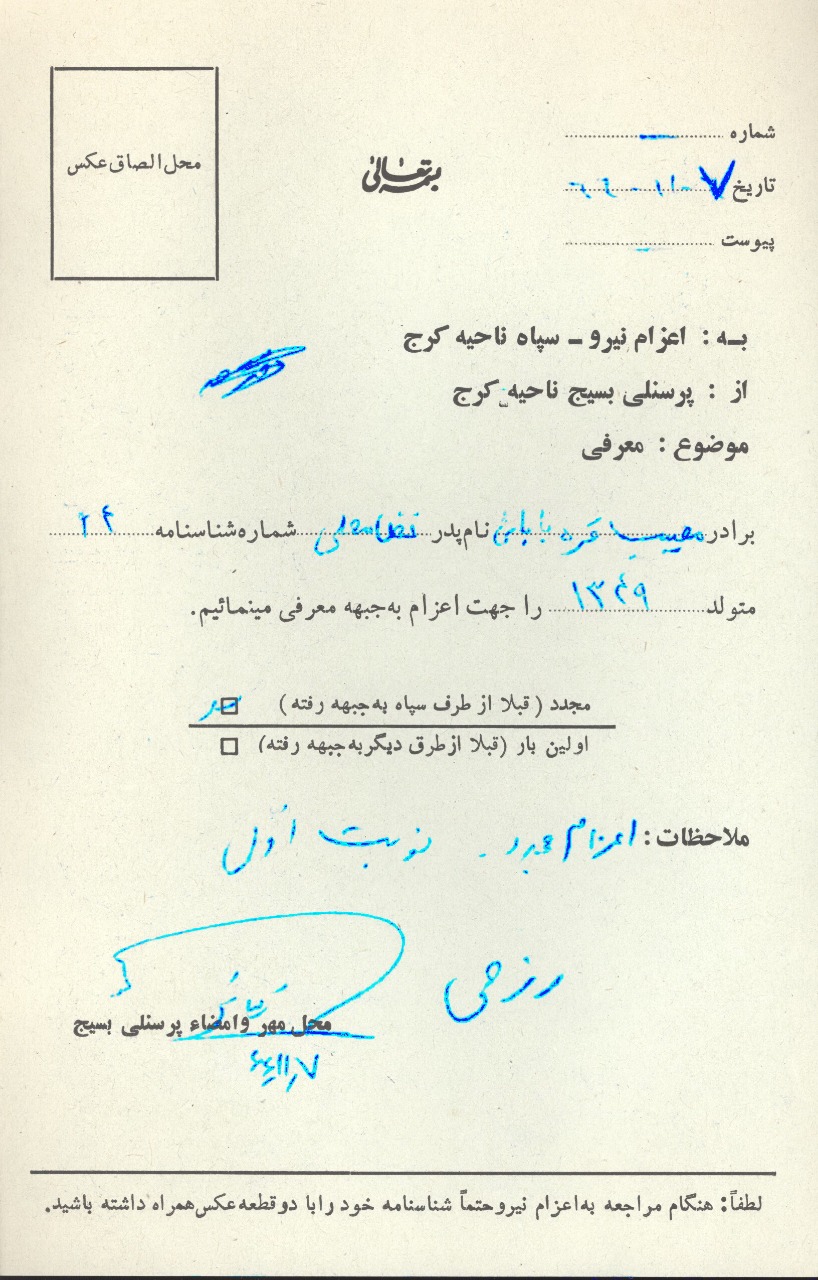 محل الصاق عکس
بسمه تعالی
شماره —
تاریخ ۷-۱۱-۶۶
پیوست —
به : اعزام نیرو - سپاه ناحیه کرج
از : پرسنلی بسیج ناحیه کرج
موضوع : معرفی
برادر قره بابائی نام پدر شماره شناسنامه ۲۴
متولد ۱۳۴۹ را جهت اعزام به جبهه معرفی مینمائیم.
مجدد ( قبلا از طرف سپاه به جبهه رفته )
اولین بار (قبلا از طرق دیگر به جبهه رفته)
ملاحظات : اعزام مجدد - نوبت اول
رزمی
محل مهر و امضاء پرسنلی بسیج
۶۶/۱۱/۷
لطفاً : هنگام مراجعه به اعزام نیرو حتماً شناسنامه خود را با دو قطعه عکس همراه داشته باشید.